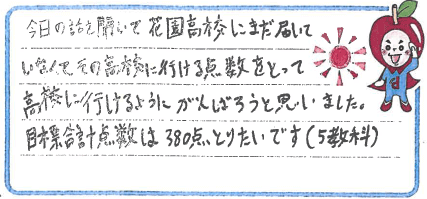 今日の話を聞いて花園高校にまだ届いて
いなくてその高校に行ける点数をとって
高校に行けるようにがんばろうと思いました。
目標合計点数は380点とりたいです(5教科)